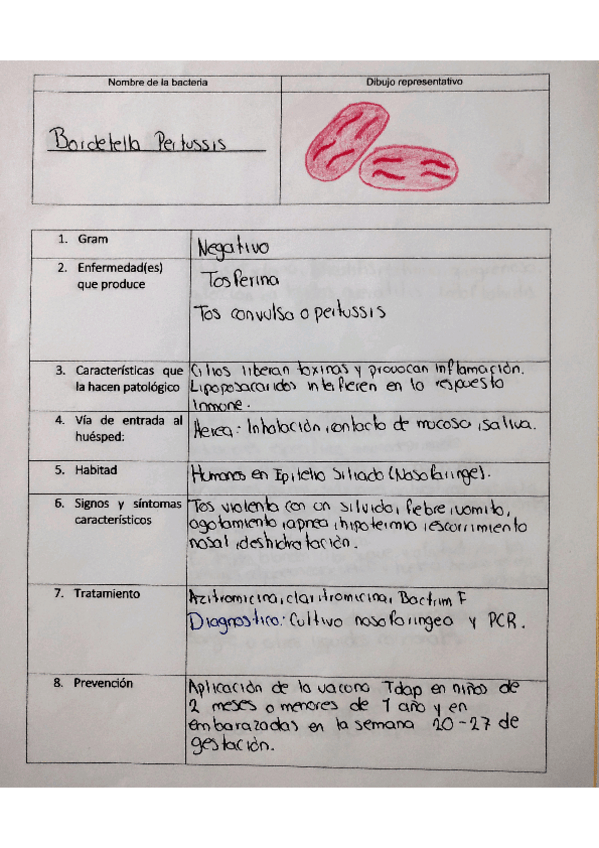 Nombre de la bacteria
Dibujo representativo
Bordetella Pertussis
1. Gram
Negativo
2. Enfermedad(es)
que produce
Tosferina
Tos convulsa o pertussis
3. Características que
la hacen patológico
Cilios liberan toxinas y provocan inflamación.
Lipoposacaridos interfieren en la respuesta
inmune.
4. Vía de entrada al
huésped:
Aerea: Inhalación, contacto de mucosa, saliva.
5. Habitad
Humanos en Epitelio Siliado (Nasofaringe).
6. Signos y síntomas
característicos
Tos violenta con un silvido, fiebre, vomito,
agotamiento, apnea, hipotermia, escorrimiento
nasal, deshidratación.
7. Tratamiento
Azitromicina, claritromicina, Bactrim F
Diagnostico: Cultivo nasofaringeo y PCR.
8. Prevención
Aplicación de la vacuna Tdap en niños de
2 meses o menores de 1 año y en
embarazadas en la semana 20-27 de
gestación.